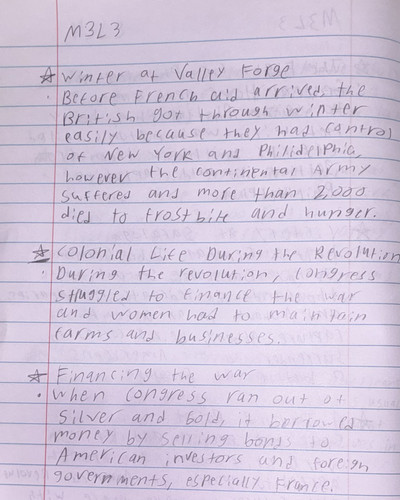 M3L3
☆ Winter at Valley Forge
· Before French aid arrived, the
British got through winter
easily because they had control
of New York and Philidelphia,
however the continental Army
suffered and more than 2,000
died to frostbite and hunger.
☆ Colonial Life During the Revolution
· During the revolution, Congress
struggled to finance the war
and women had to maintain
farms and businesses.
☆ Financing the war
· When Congress ran out of
Silver and bold, it borrowed
money by selling bonds to
American investors and foreign
governments, especially France.